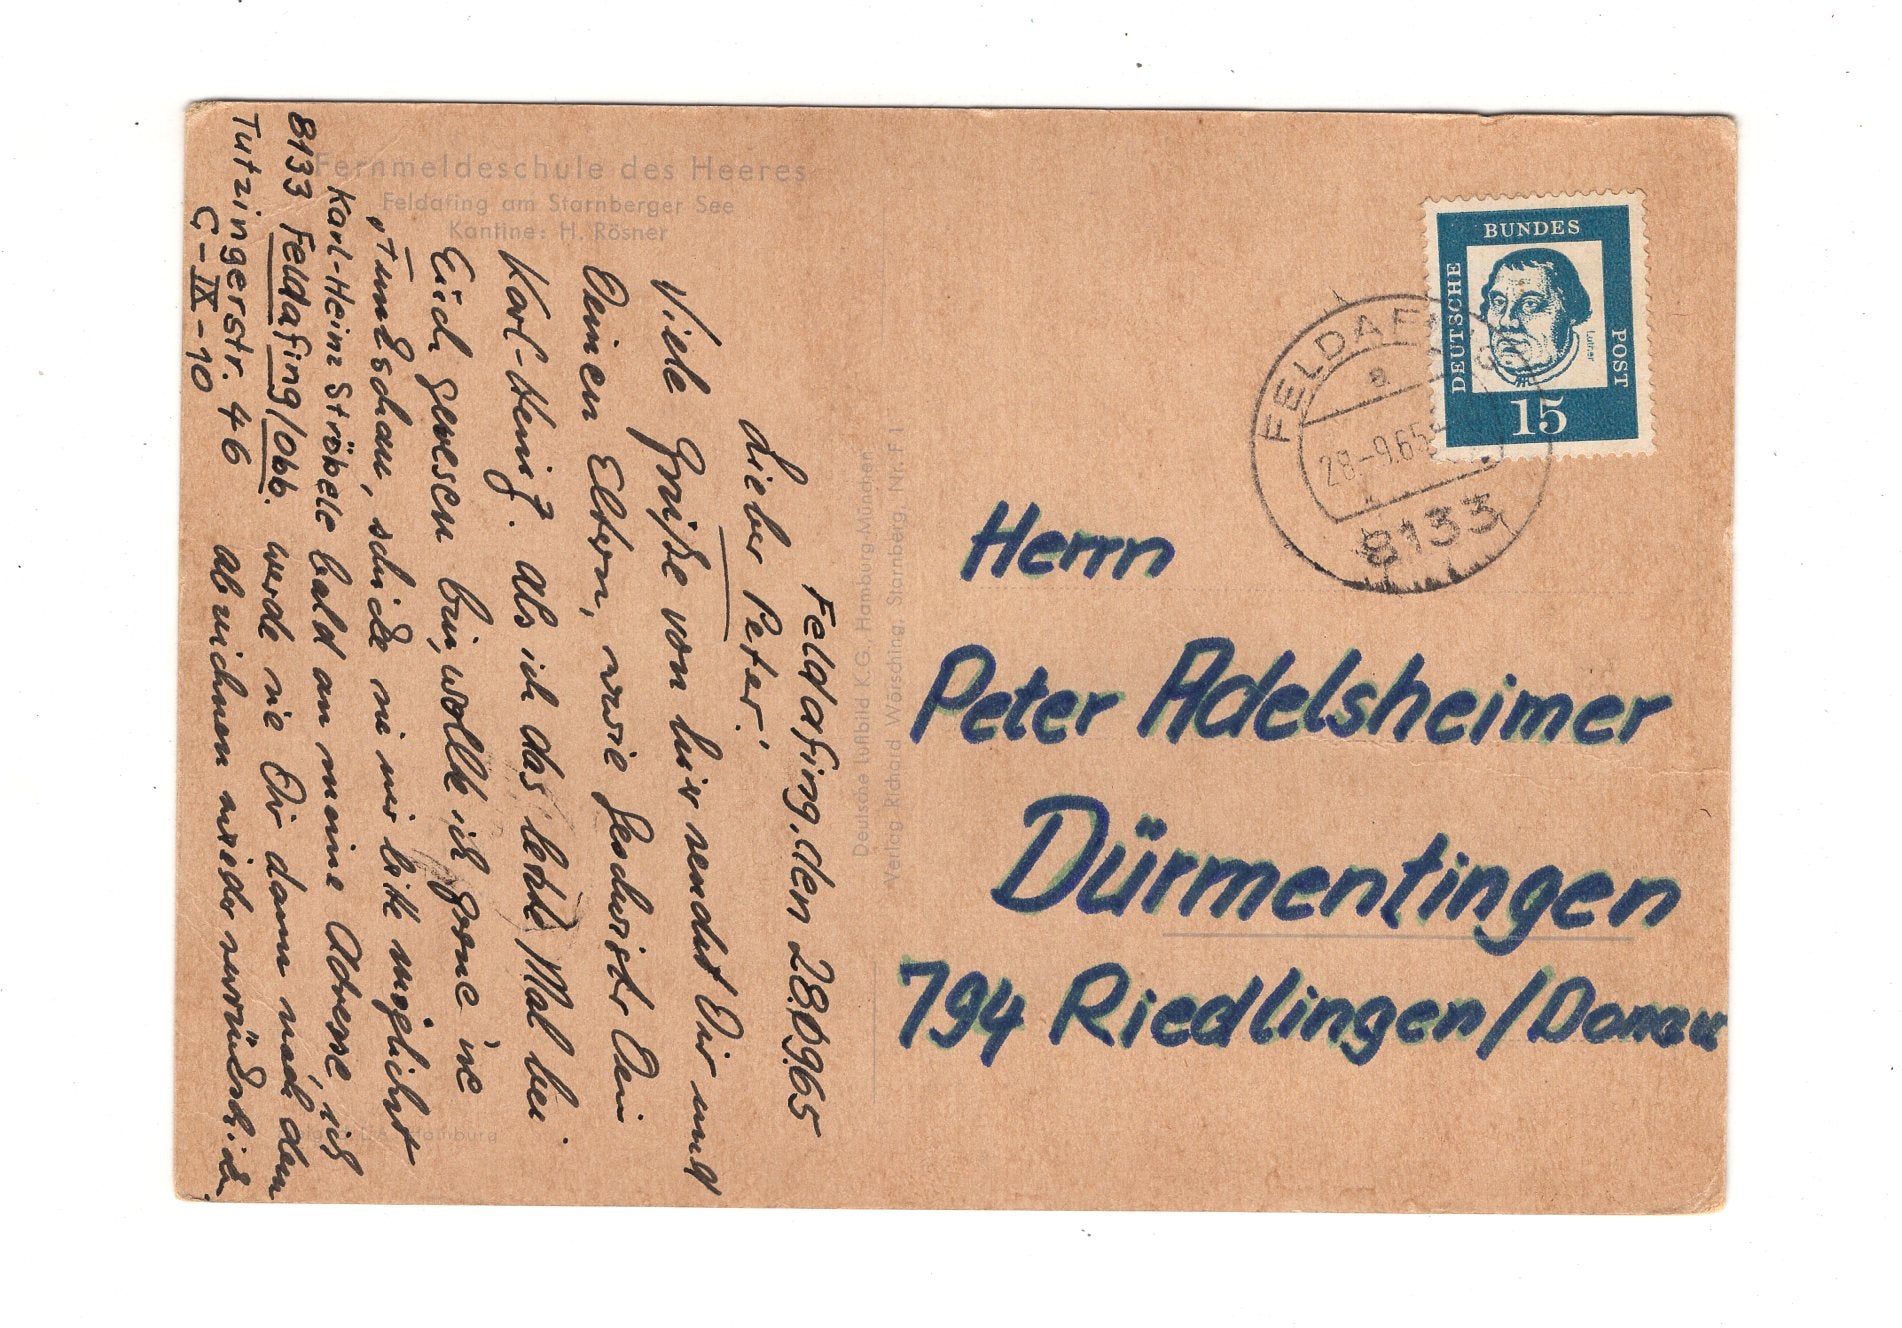 Fernmeldeschule des Heeres
Feldafing am Starnberger See
Kantine: H. Rösner
Karl-Heinz Ströbele
8133 Feldafing/Obb.
Tutzingerstr. 46
C-IX-10
Feldafing, den 28.09.65
Lieber Peter!
Viele Grüße von hier sendet Dir und
Deinen Eltern, sowie Geschwister Dein
Karl-Heinz. Als ich das letzte Mal bei
Euch gewesen bin, wollte ich gerne ins
schicke sie mir bitte möglichst
bald an meine Adresse, ich
werde sie Dir dann nach dem
wieder
Deutsche Luftbild K.G., Hamburg-München
Verlag Richard Wörsching, Starnberg, Nr. F 1
Hamburg
DEUTSCHE
BUNDES
POST
Luther
15
FELDAFING
a
28.-9.65
8133
Herrn
Peter Adelsheimer
Dürmentingen
794 Riedlingen/Donau